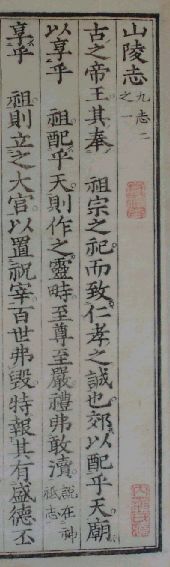 山陵志 九志二之一
古之帝王其奉 祖宗之祀而致仁孝之誠也郊以配乎天廟
以享乎 祖配乎天則作之靈畤至尊至嚴禮弗敢瀆 說在神祇志
享乎 祖則立之大宮以置祝宰百世弗毀特報其有盛德丕